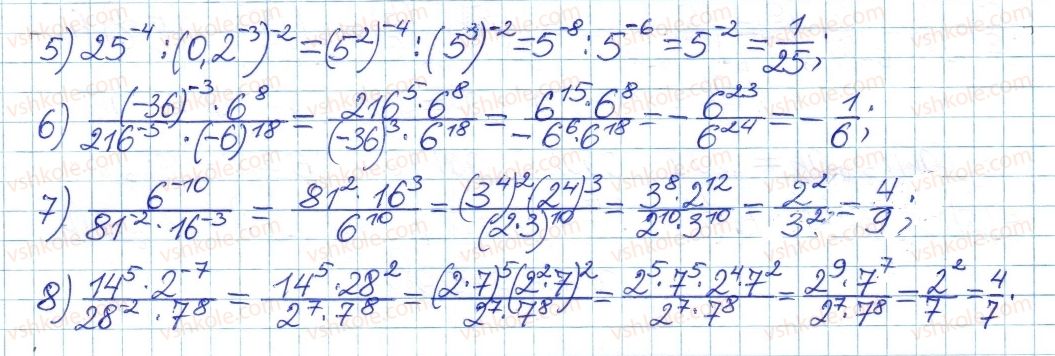 5) 25^{-4} : (0,2^{-3})^{-2} = (5^{-2})^{-4} : (5^3)^{-2} = 5^{-8} : 5^{-6} = 5^{-2} = \frac{1}{25};
6) \frac{(-36)^{-3} \cdot 6^8}{216^{-5} \cdot (-6)^{18}} = \frac{216^5 \cdot 6^8}{(-36)^3 \cdot 6^{18}} = \frac{6^{15} \cdot 6^8}{-6^6 \cdot 6^{18}} = -\frac{6^{23}}{6^{24}} = -\frac{1}{6};
7) \frac{6^{-10}}{81^{-2} \cdot 16^{-3}} = \frac{81^2 \cdot 16^3}{6^{10}} = \frac{(3^4)^2 (2^4)^3}{(2 \cdot 3)^{10}} = \frac{3^8 \cdot 2^{12}}{2^{10} \cdot 3^{10}} = \frac{2^2}{3^2} = \frac{4}{9};
8) \frac{14^5 \cdot 2^{-7}}{28^{-2} \cdot 7^8} = \frac{14^5 \cdot 28^2}{2^7 \cdot 7^8} = \frac{(2 \cdot 7)^5 (2^2 \cdot 7)^2}{2^7 \cdot 7^8} = \frac{2^5 \cdot 7^5 \cdot 2^4 \cdot 7^2}{2^7 \cdot 7^8} = \frac{2^9 \cdot 7^7}{2^7 \cdot 7^8} = \frac{2^2}{7} = \frac{4}{7}.